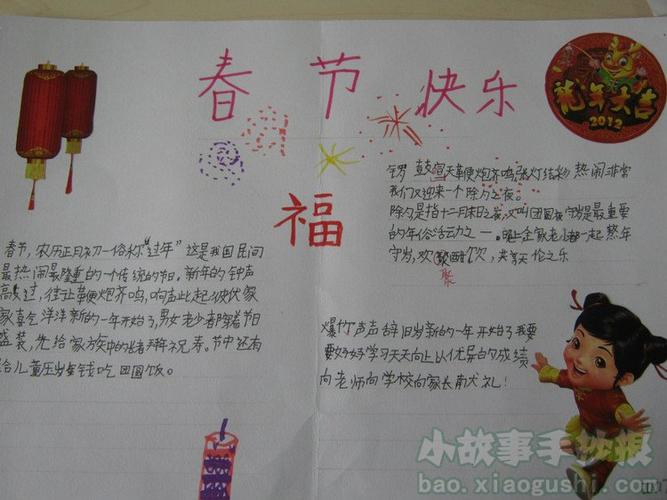 春节快乐
龙年大吉
2012
福
春节，农历正月初一俗称"过年"这是我国民间
最热闹最隆重的一个传统的节。新年的钟声
高过，往让鞭炮齐鸣，响声此起彼伏家
家喜气洋洋新的一年开始了，男女老少都穿着节日
盛装，先给家族中的长者拜年祝寿。节中还有
给儿童压岁钱吃团圆饭。
锣鼓喧天鞭炮齐鸣张灯结彩热闹非常
我们又迎来一个除夕之夜。
除夕是指十二月末日之夜又叫团圆夜守岁是最重要
的年俗活动之一。晚上全家老小都一起熬年
守岁，欢聚酣饮，共享天伦之乐
聚
爆竹声声辞旧岁新的一年开始了我要
要好好学习天天向上以优异的成绩
向老师向学校向家长献礼！
小故事手抄报
bao.xiaogushi.com